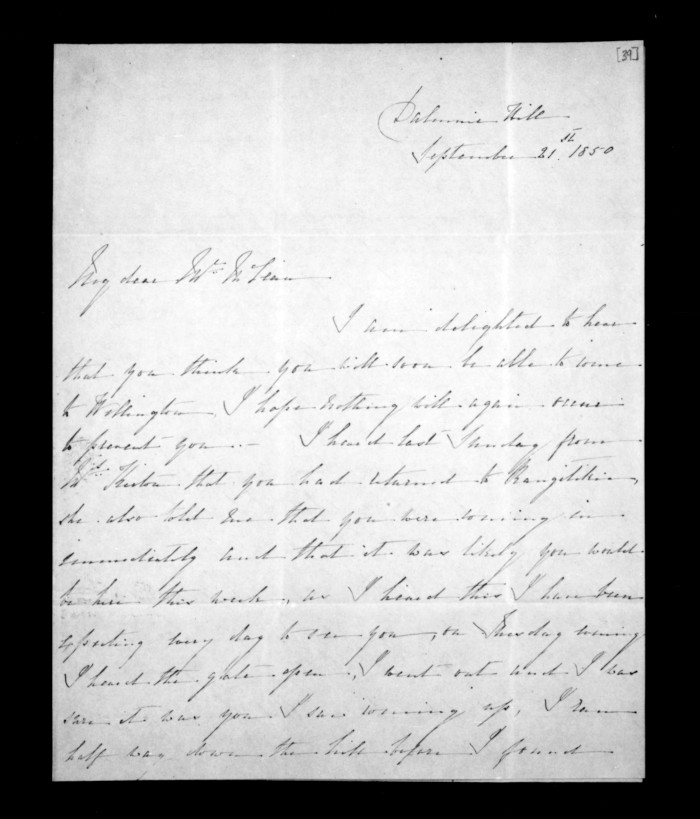 [39]
Dalmuir Hill
September 21st 1850
My dear Mr McLean
I am delighted to hear
that you think you will soon be able to come
to Wellington, I hope nothing will again occur
to prevent you. - I heard last Sunday from
that you had returned to Rangitikei,
she also told me that you were coming in
immediately and that it was likely you would
be here this week, as I heard this I have been
expecting every day to see you, on Tuesday evening
I heard the gate open, I went out and I was
sure it was you I saw coming up, I ran
half way down the hill before I found